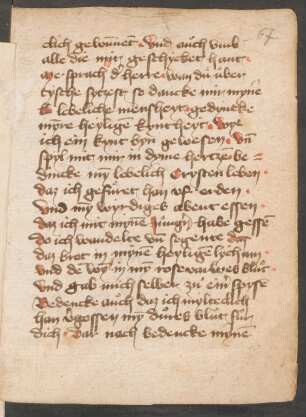 67
clich gewunnet · Und auch umb
alle die mir geschycket hant ·
sprach der herre · wan du uber
so dancke mir myne
liebeliche menscheyt · gedencke
myne heylige kyntheyt · Wye
ich ein kynt byn gewesen · Vnd
spyl mit mir in dyme hertze be
dencke my lebelich Crysten leben ·
daz ich gefuret han uf erden ·
Und my wyrdiges abent essen ·
daz ich mit myne Jungern habe gessen
do ich wandelte und segente daz
daz brot in myne heyligen lycham
und de wyn in myn rosevarwes blut
und gab mich selber zu ein spyse
Bedencke auch daz ich mylteclich
han vergossen myn dures blut fur
dich · Dar nach bedencke myne